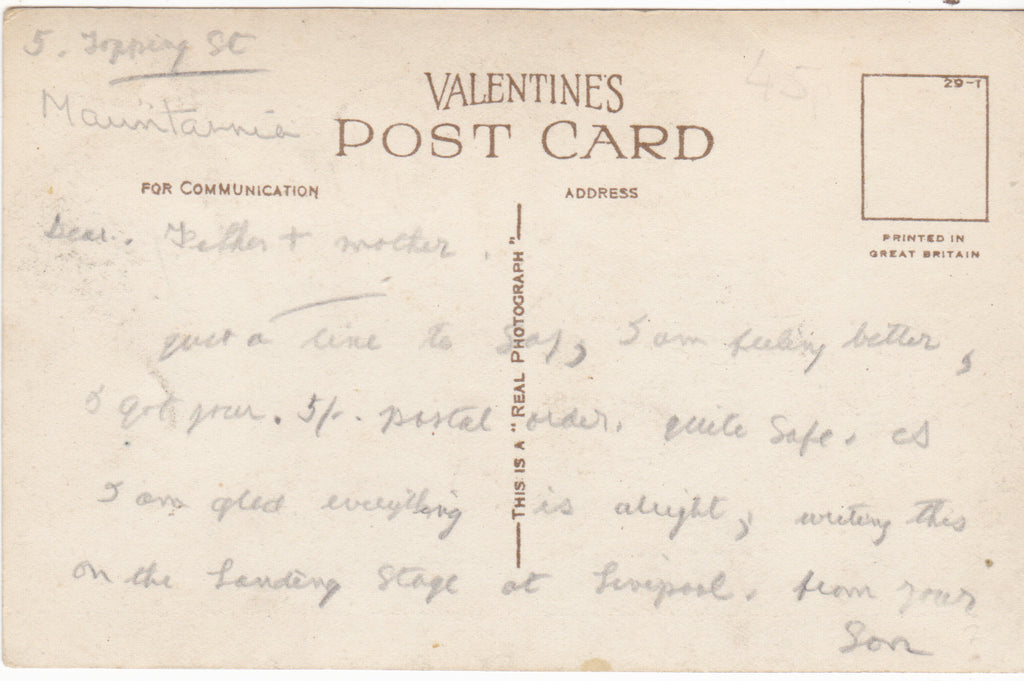 5. Topping St
45
VALENTINE'S
29-1
Mauntarnia
POST CARD
FOR COMMUNICATION
ADDRESS
PRINTED IN
GREAT BRITAIN
THIS IS A "REAL PHOTOGRAPH"
Dear. Father + mother.
just a line to say, I am feeling better,
I got your. 5/-. postal order. quite safe. &
I am glad everything is alright, writing this
on the Landing Stage at Liverpool. from your
Son